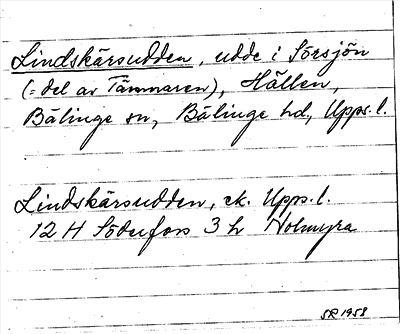 Lindskärsudden, udde i Sörsjön
(= del av Tämnaren), Hällen,
Bälinge sn, Bälinge hd, Upps. l.
Lindskärsudden, ek. Upps. l.
12 H Söderfors 3 h Holmyra
SR 1958